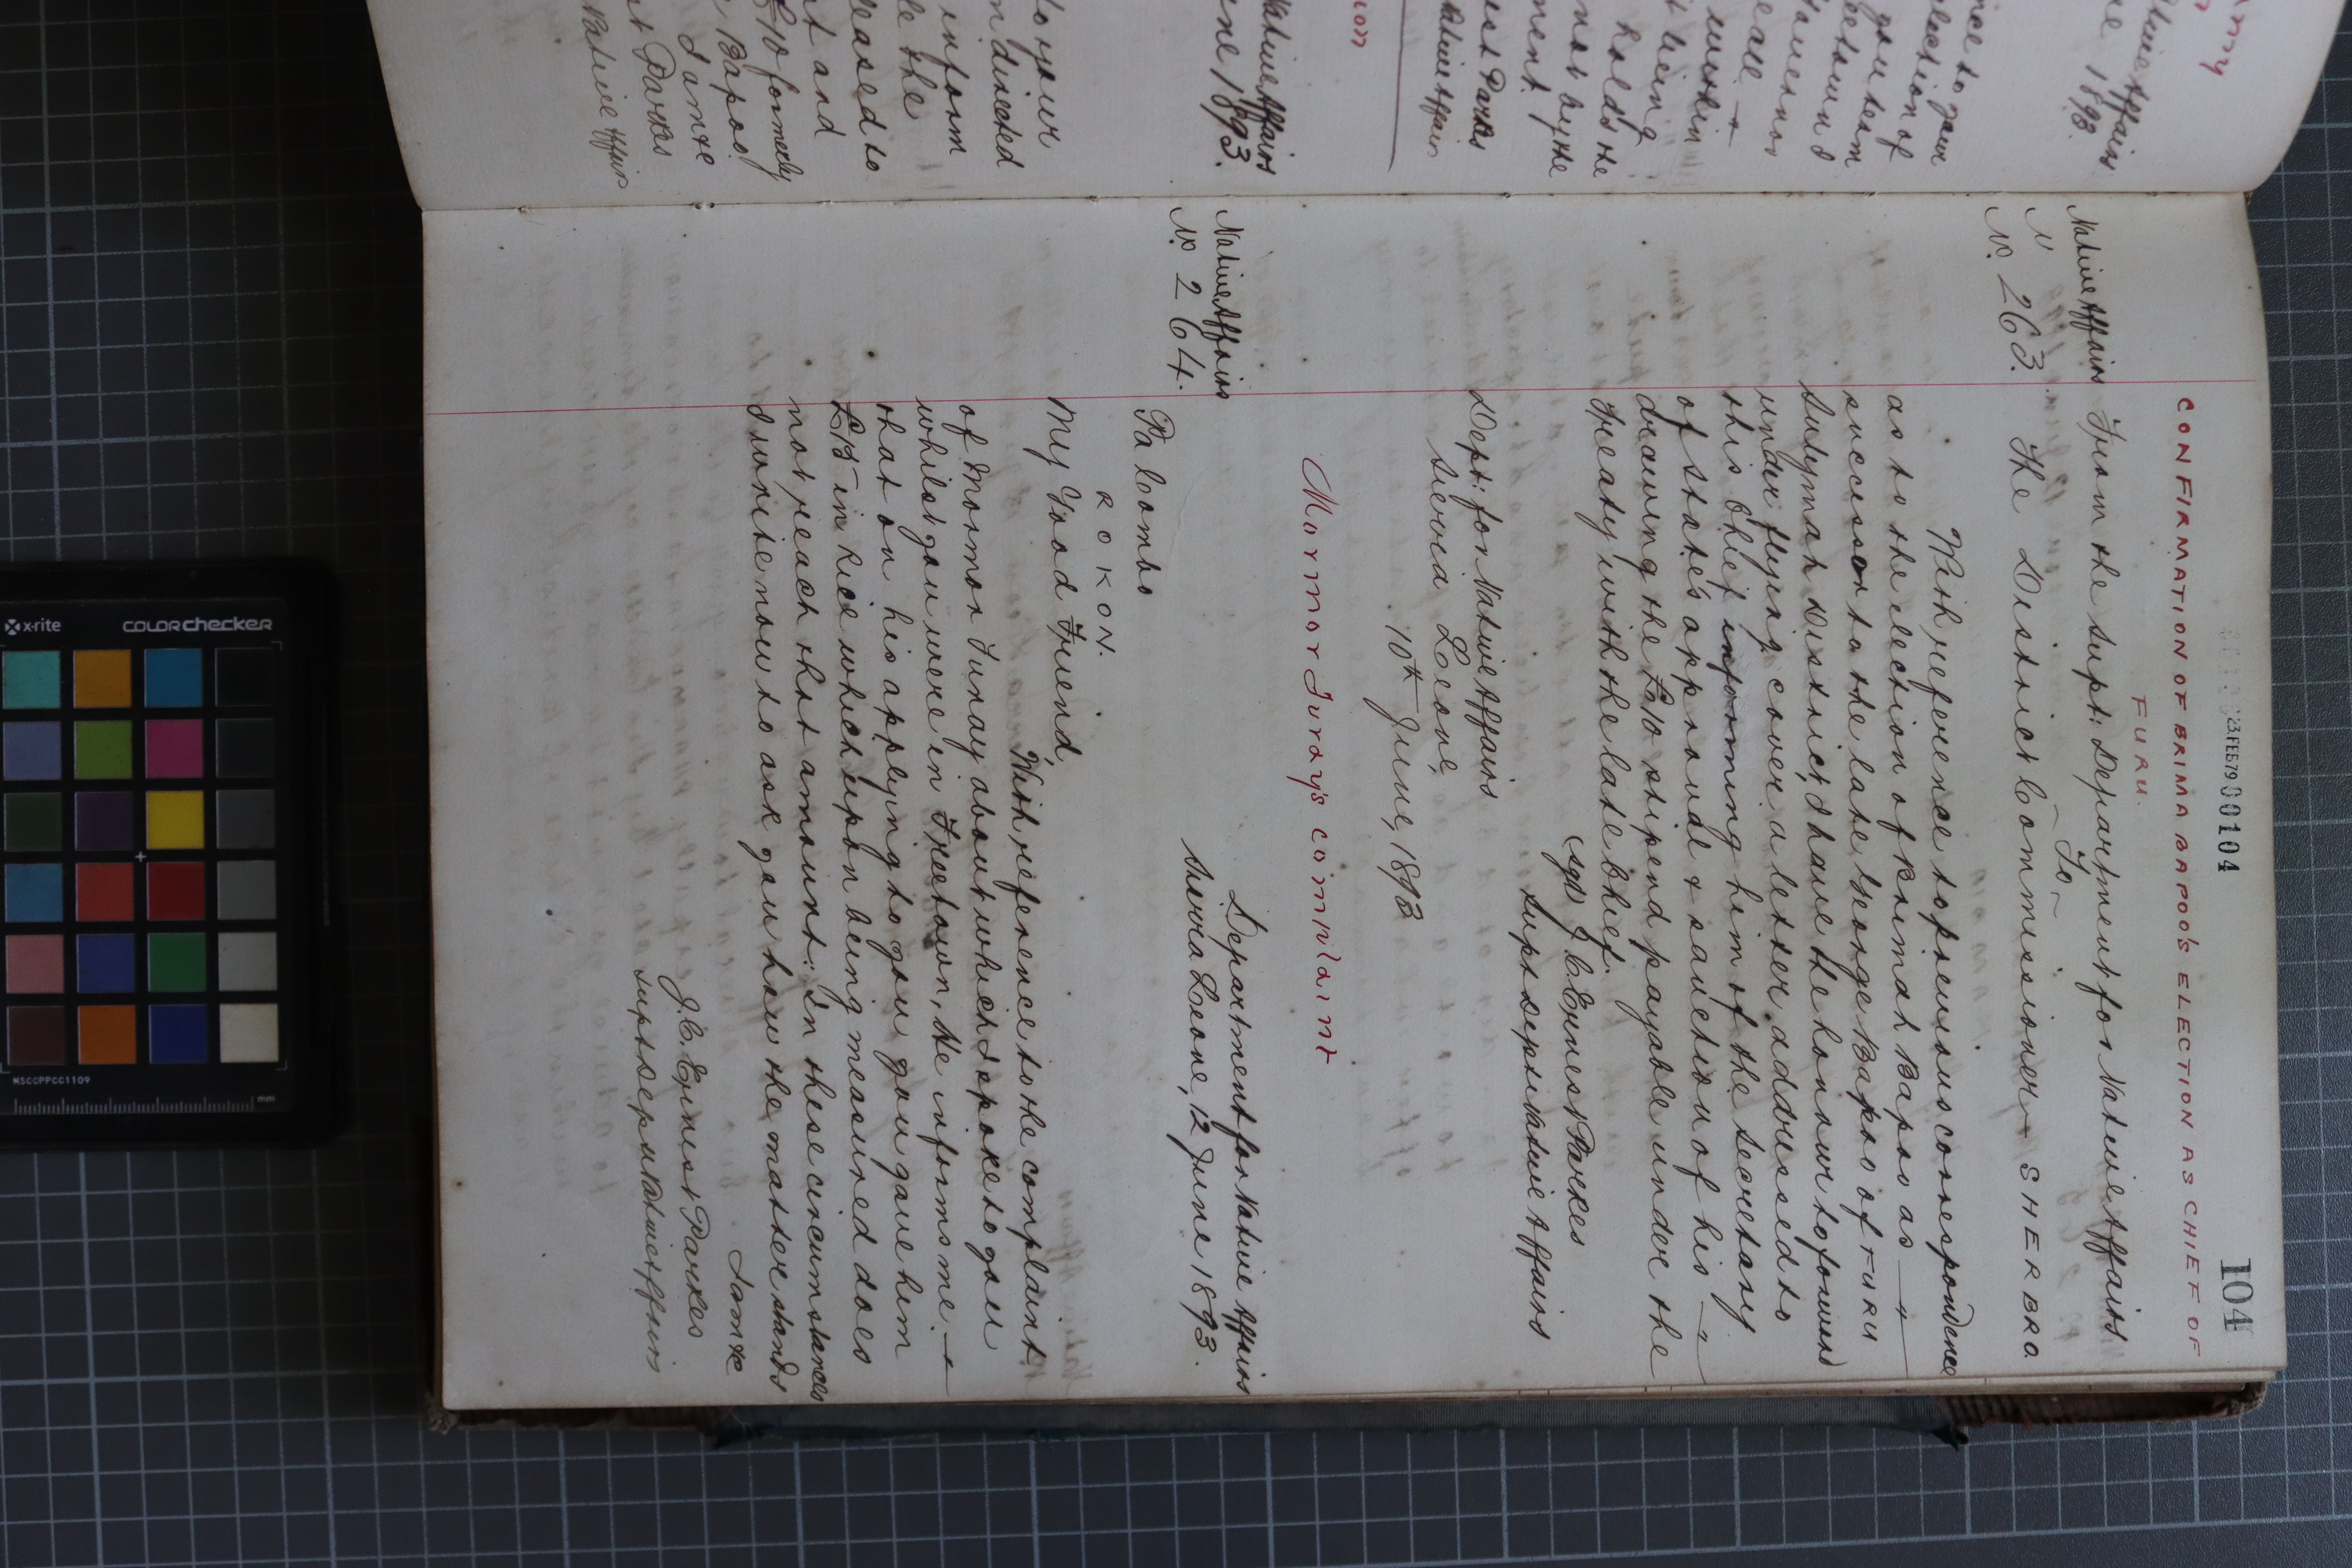 23.FEB79 00104
104
CONFIRMATION OF BRIMA BAPOO'S ELECTION AS CHIEF OF
FURU.
Native Affairs From the Supt: Department for Native Affairs
— To —
No. 263. The District Commissioner — SHERBRO
With reference to previous correspondence
as to the election of Brimah Bapoo as —
successor to the late George Bapoo of FURU
Sulymah District, I have the honour to forward
under flying cover a letter addressed to
this Chief informing him of the Secretary
of State's approval & sanction of his —
drawing the £10 stipend payable under the
Treaty with the late Chief.
(sgd) J. C. Ernest Parkes
Supt Dept Native Affairs
Dept: for Native Affairs
Sierra Leone,
10th June, 1893
Mormor Turay's complaint
Native Affairs
No. 264.
Department for Native Affairs
Sierra Leone, 12 June 1893.
Pa Combo
ROKON.
My Good Friend,
With reference to the complaint
of Mormor Turay about which I spoke to you
whilst you were in Freetown, He informs me —
that on his applying to you you gave him
in rice which upon being measured does
not reach that amount: in these circumstances
I write now to ask you how the matter stands
I am &c
J. C. Ernest Parkes
Supt Dept Native Affairs
Native Affairs
ne 1893.
to your
m directed
inform
le the
leased to
t and
£10 formerly
Bapoo
I am &c
st Parkes
Native Affairs
x-rite
COLORchecker
MSCCPPCC1109
mm